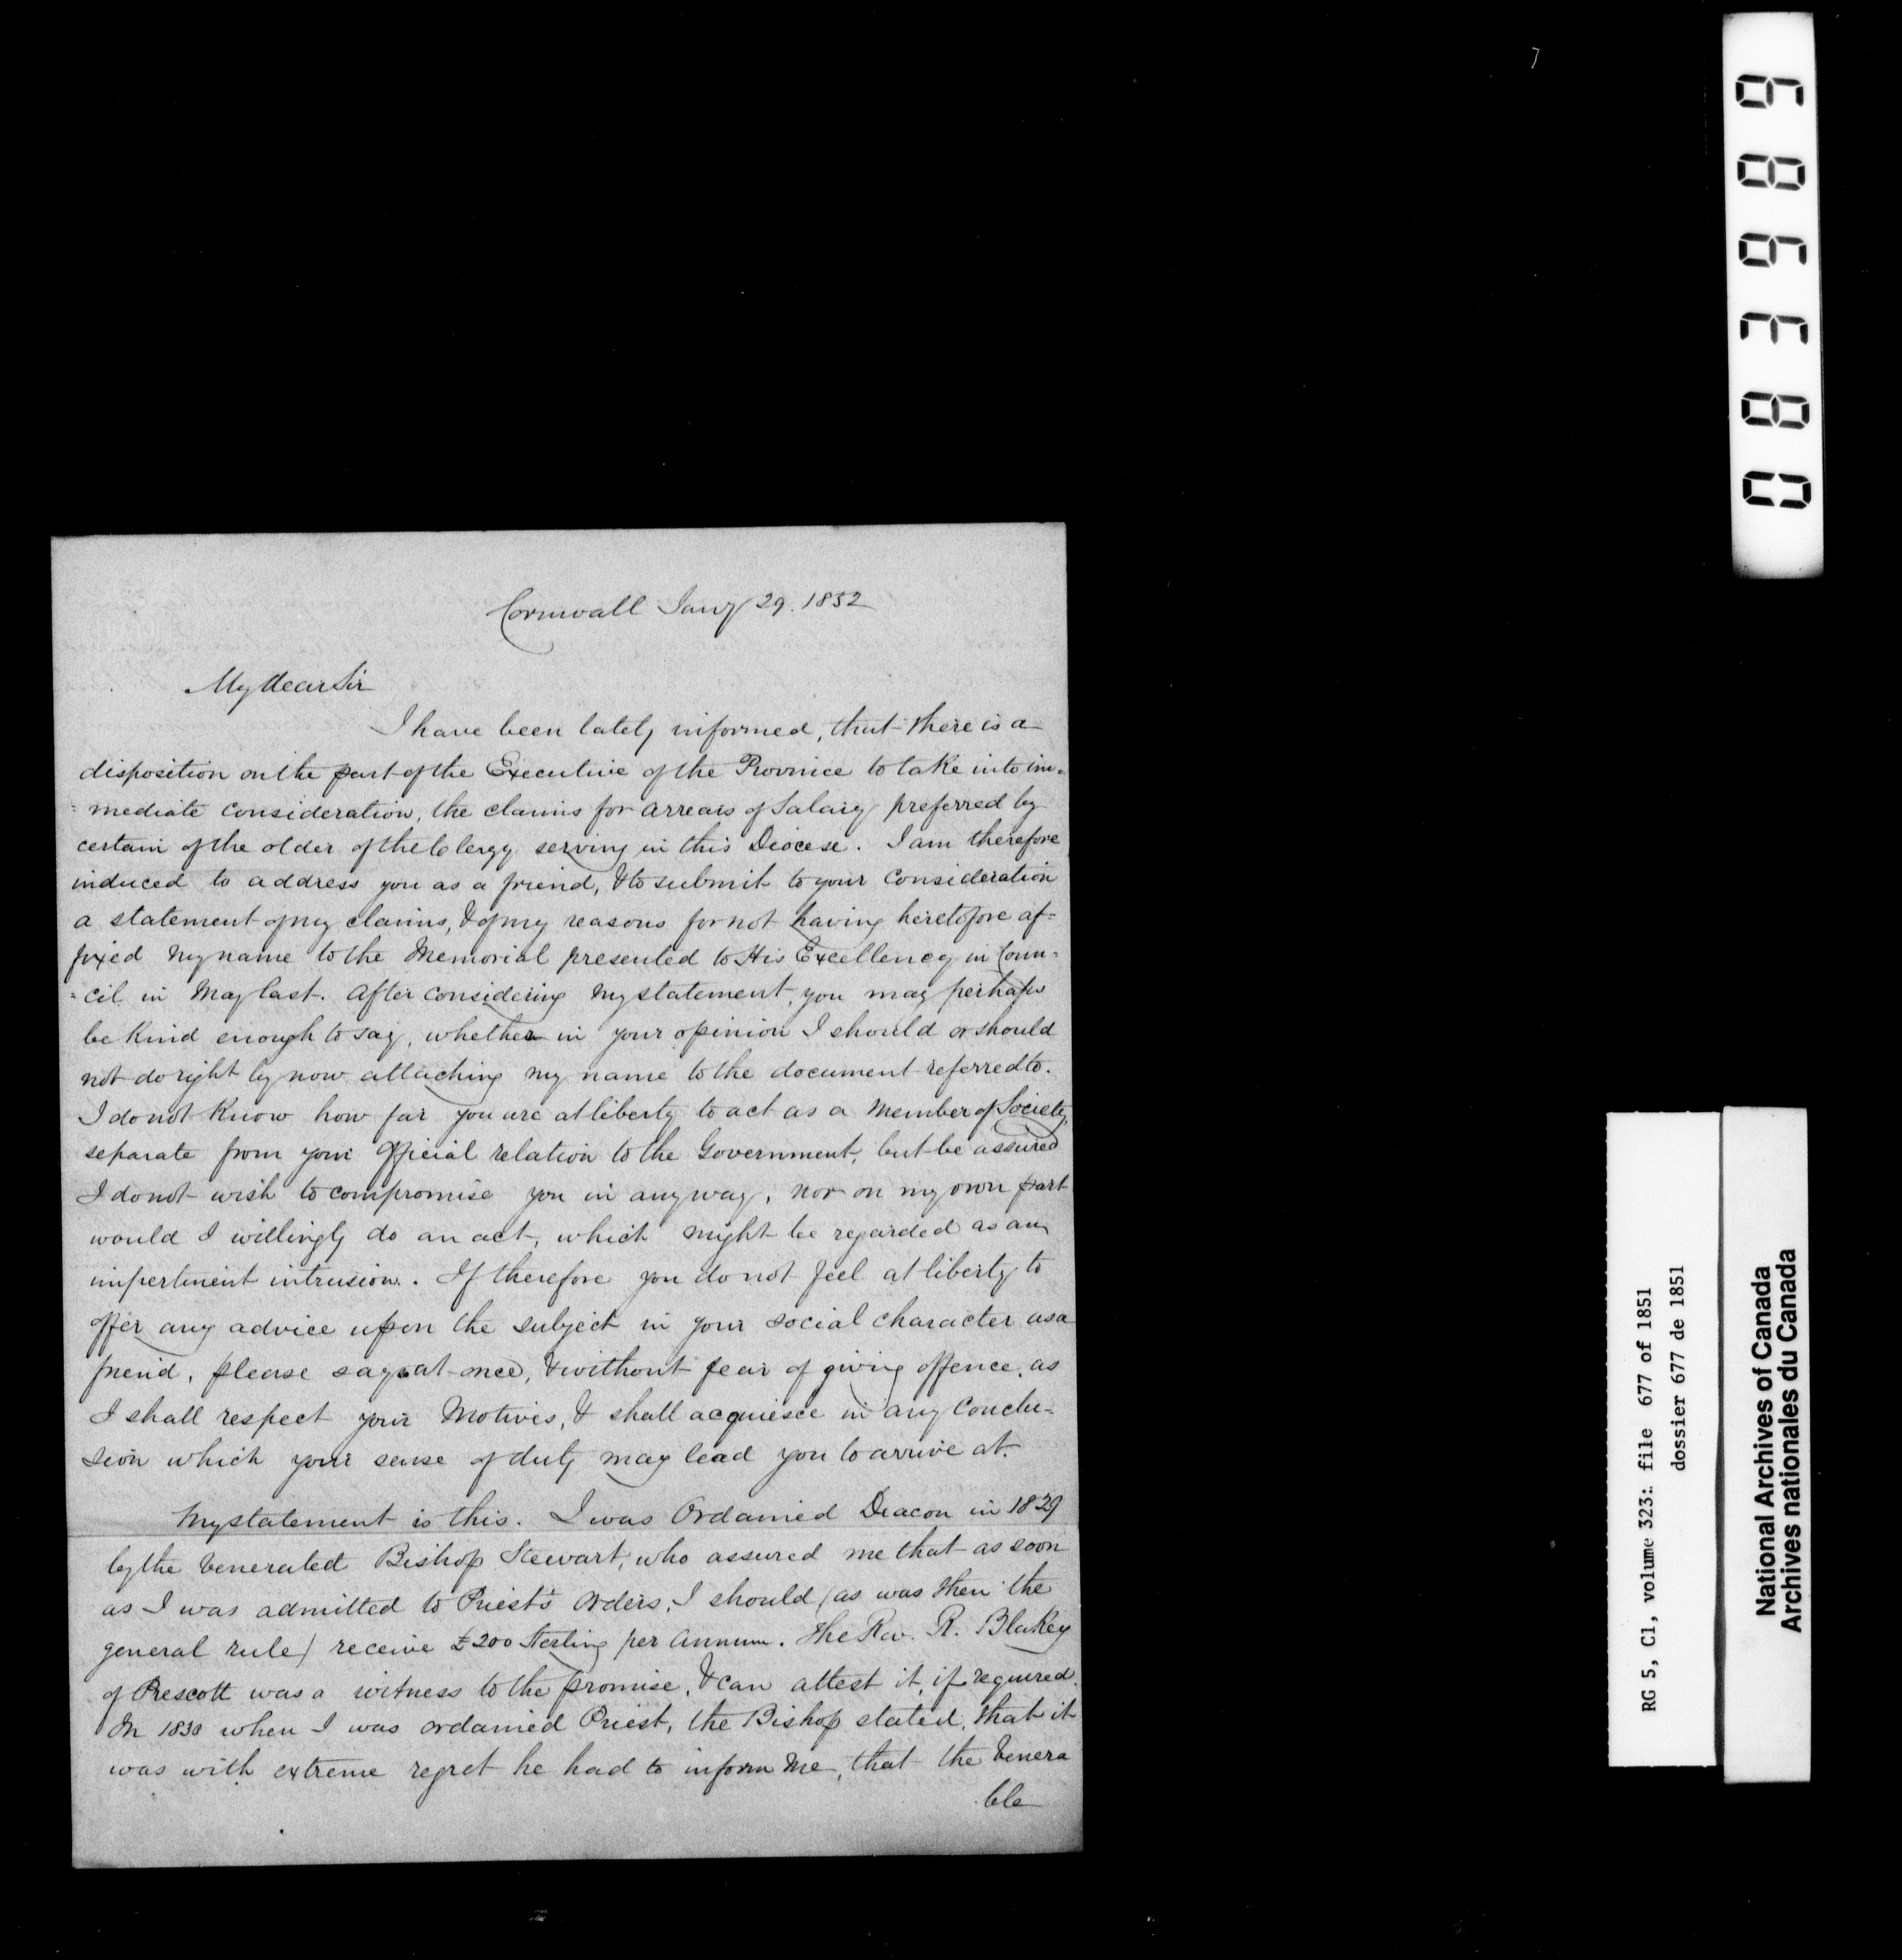 Cornwall Jany 29. 1852
My dear Sir
I have been lately informed, that there is a
disposition on the part of the Executive of the Province to take into im=
=mediate consideration, the claims for arrears of Salary preferred by
certain of the older of the Clergy serving in this Diocese. I am therefore
induced to address you as a friend, & to submit to your consideration
a statement of my claims, & of my reasons for not having heretofore af=
fixed my name to the Memorial presented to His Excellency in Coun=
=cil in May last. After considering my statement, you may perhaps
be kind enough to say, whether in your opinion I should or should
not do right by now attaching my name to the document referred to.
I do not know how far you are at liberty to act as a Member of Society,
separate from your Official relation to the Government, but be assured
I do not wish to compromise you in any way, nor on my own part
would I willingly do an act, which might be regarded as an
impertinent intrusion. If therefore you do not feel at liberty to
offer any advice upon the subject in your social character as a
friend, please say so at once, & without fear of giving offence, as
I shall respect your Motives, & shall acquiesce in any Conclu=
sion which your sense of duty may lead you to arrive at.
My statement is this. I was Ordained Deacon in 1829
by the Venerated Bishop Stewart, who assured me that as soon
as I was admitted to Priest's Orders, I should (as was then the
general rule) receive £200 Sterling per Annum. The Rev. R. Blakey
of Prescott was a witness to the promise, & can attest it, if required.
In 1830 when I was ordained Priest, the Bishop stated, that it
was with extreme regret he had to inform me, that the Venera
ble
7
083689
RG 5, C1, volume 323: file 677 of 1851
dossier 677 de 1851
National Archives of Canada
Archives nationales du Canada